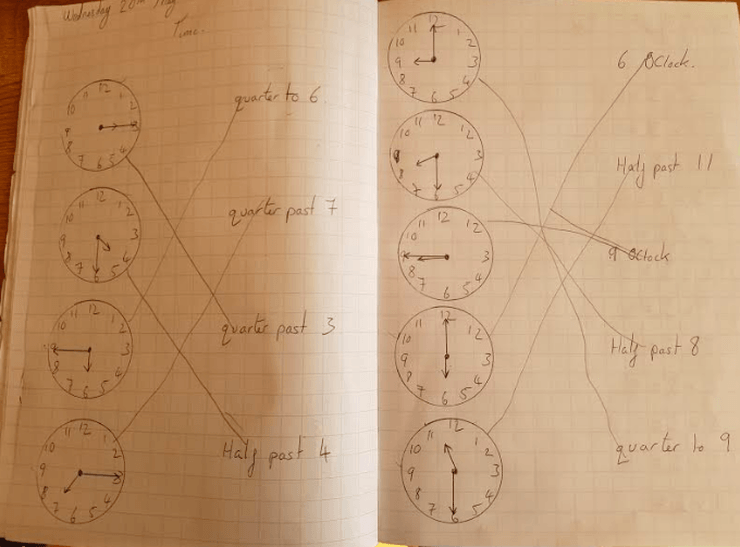 Wednesday 20th May
Time.
12
11
1
2
3
4
5
6
7
8
9
quarter to 6
12
1
2
3
4
5
6
7
8
9
quarter past 7
12
11
1
2
3
4
5
6
7
8
9
quarter past 3
12
11
1
10
2
9
3
8
4
7
6
5
Half past 4
12
11
1
10
2
9
3
8
4
7
5
6
6 OClock.
12
11
1
10
2
3
8
4
7
5
6
Half past 11
12
11
1
10
2
9
3
8
4
7
5
6
9 OClock
12
11
1
10
2
9
3
8
4
7
5
6
Half past 8
12
11
1
10
2
9
3
8
4
7
5
6
quarter to 9